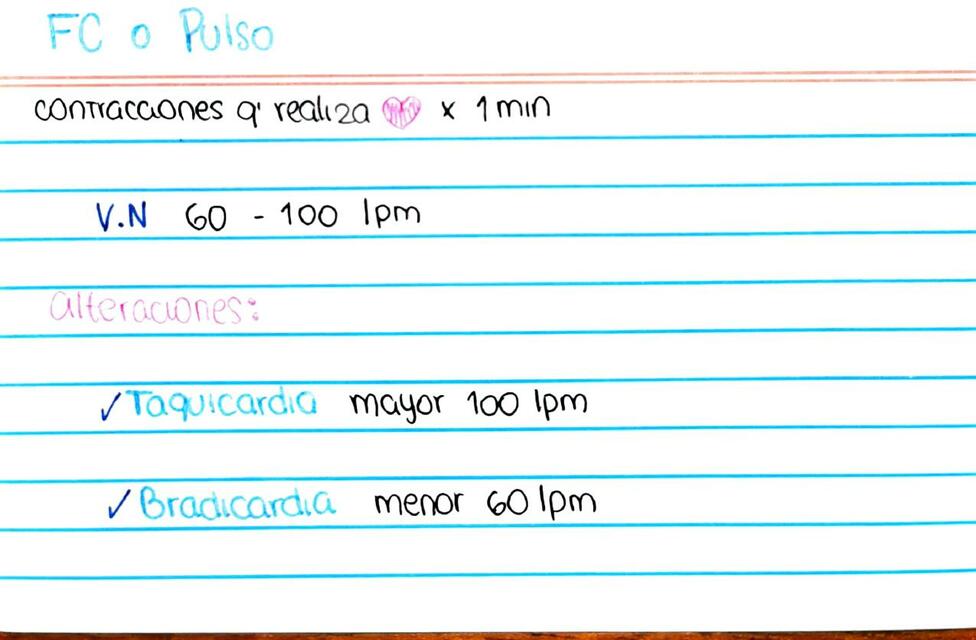 FC o Pulso
contracciones q' realiza 🩷 x 1 min
V.N 60 - 100 lpm
alteraciones:
✓ Taquicardia mayor 100 lpm
✓ Bradicardia menor 60 lpm